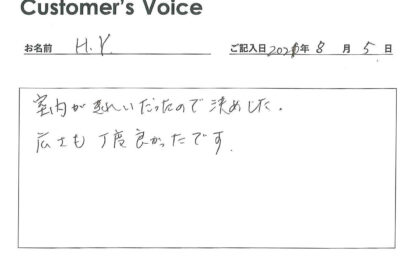 Customer's Voice
お名前 H.Y. ご記入日 年 8 月 5 日
室内がきれいだったので決めました。
広さも丁度良かったです。